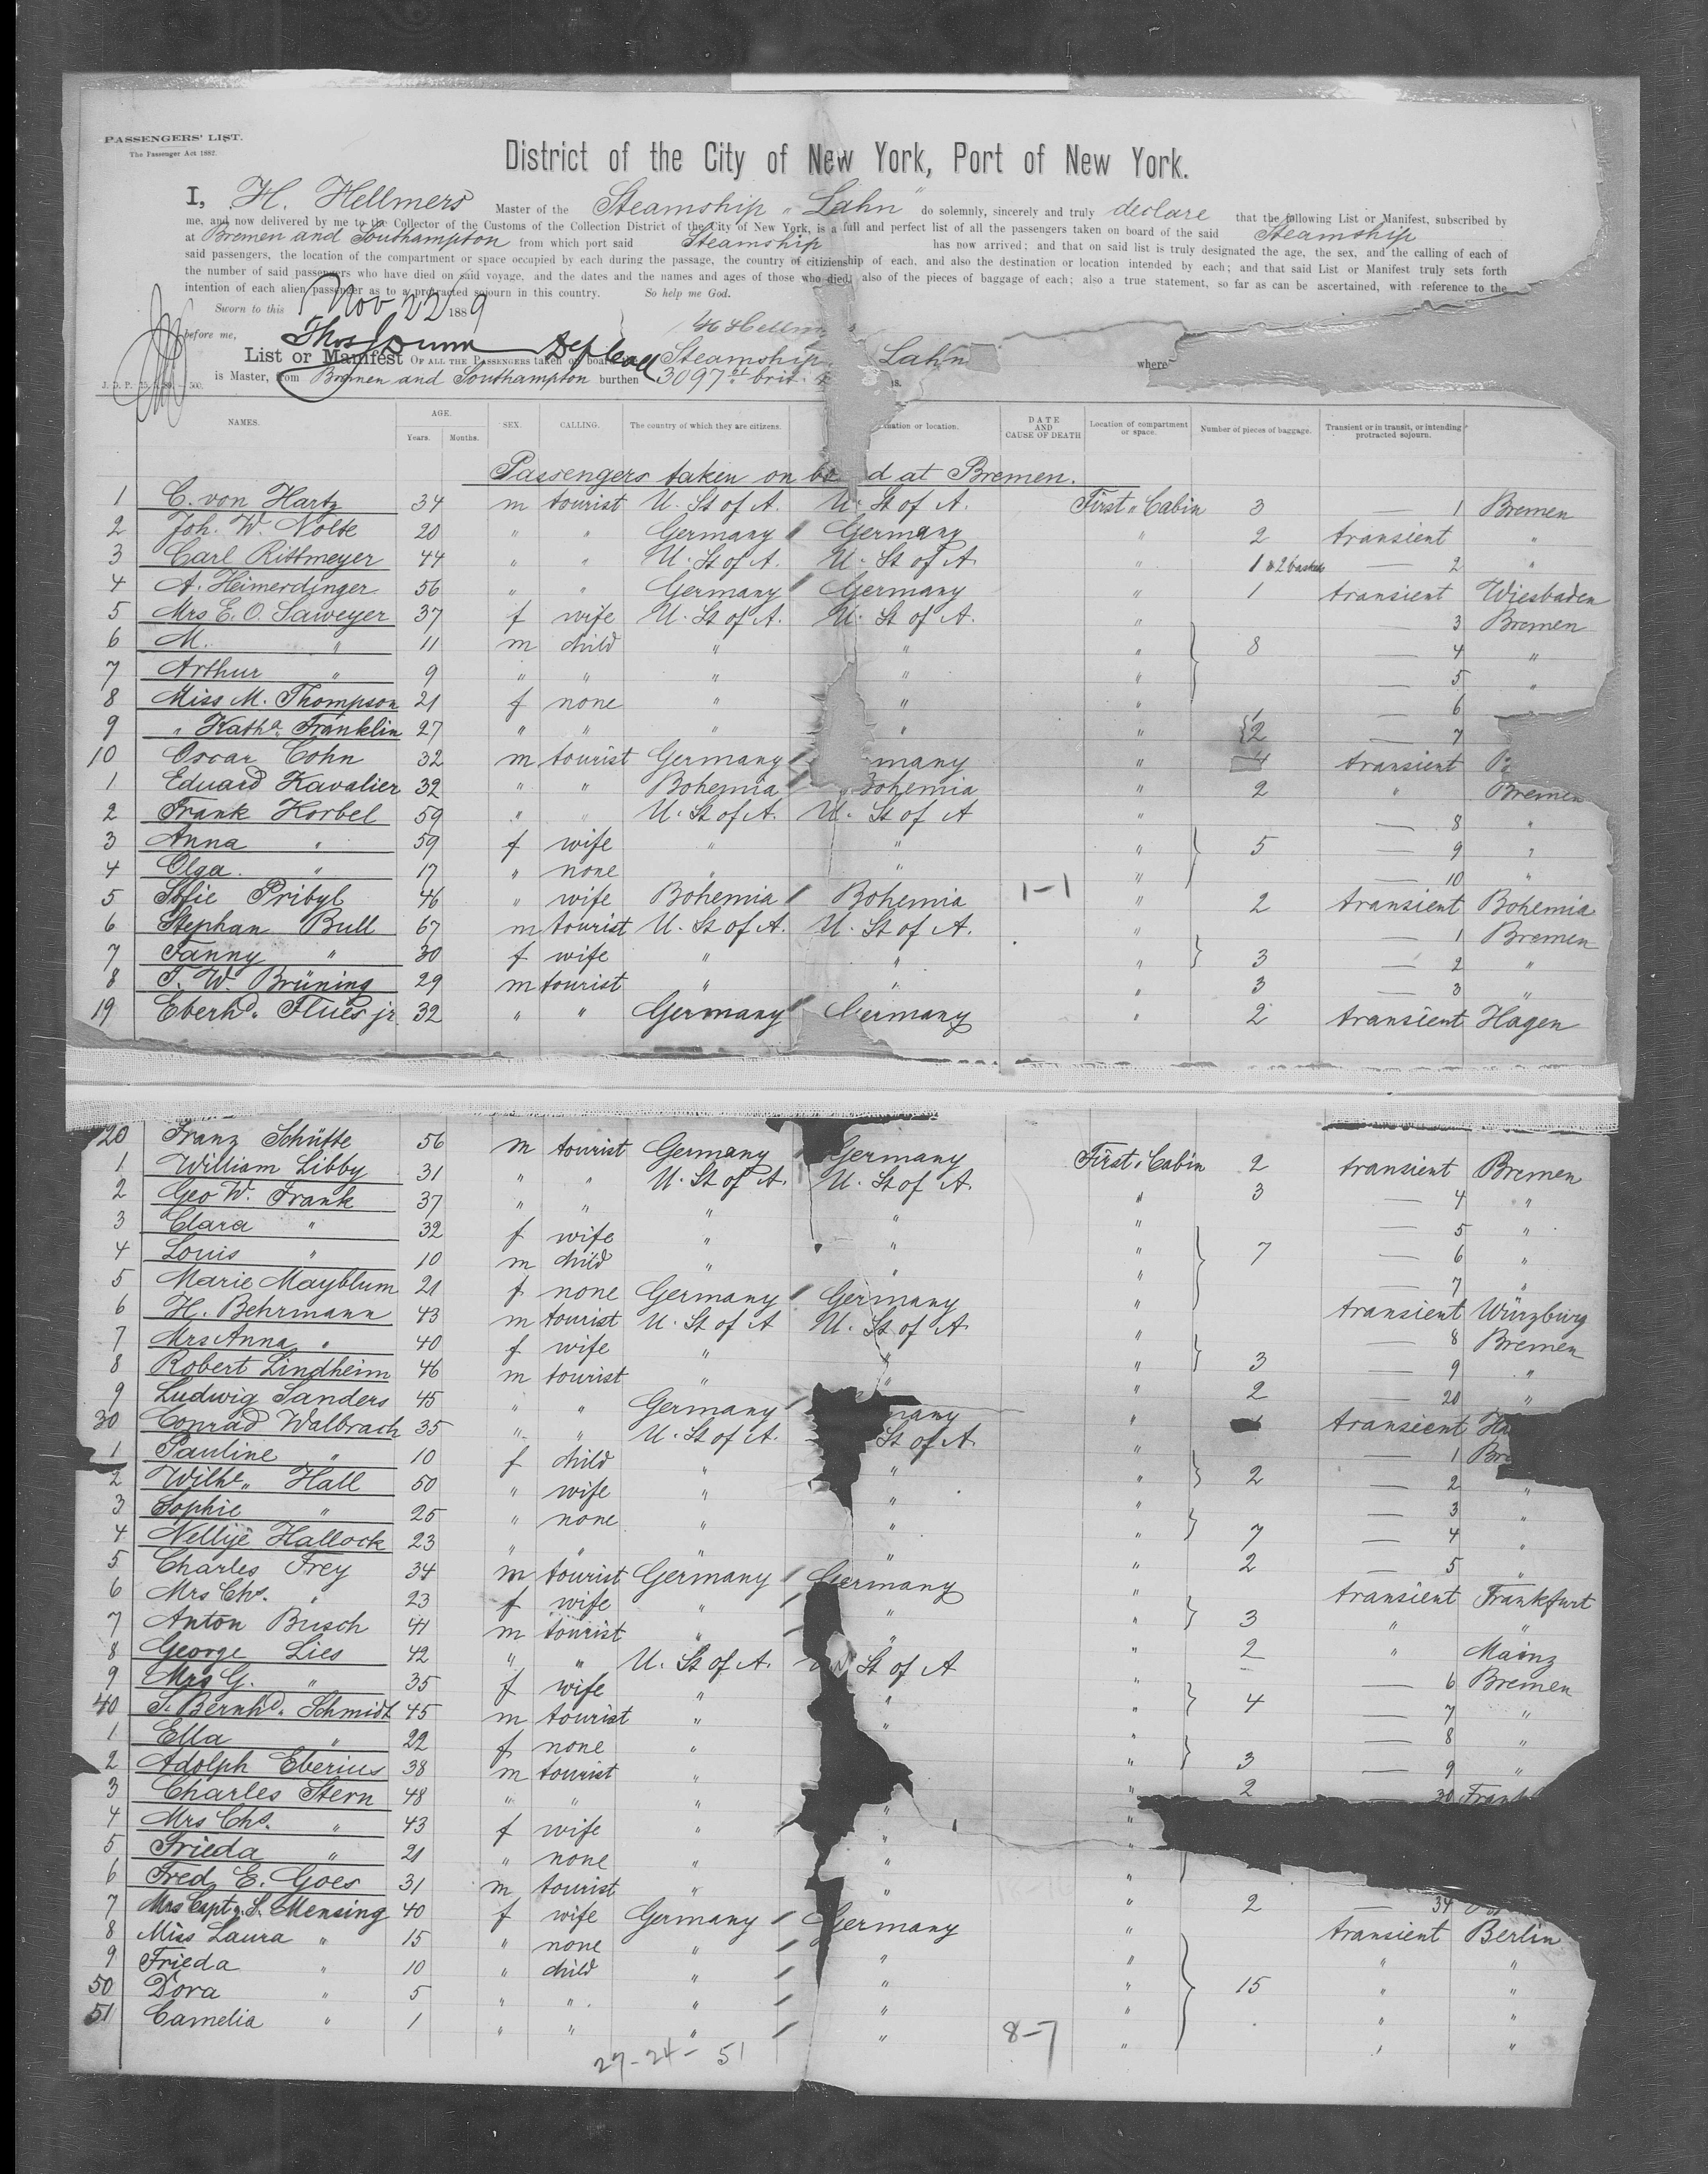 PASSENGERS' LIST.
The Passenger Act 1882.
District of the City of New York, Port of New York.
I, H. Hellmers Master of the Steamship „Lahn" do solemnly, sincerely and truly declare that the following List or Manifest, subscribed by
me, and now delivered by me to the Collector of the Customs of the Collection District of the City of New York, is a full and perfect list of all the passengers taken on board of the said Steamship
at Bremen and Southampton from which port said Steamship has now arrived; and that on said list is truly designated the age, the sex, and the calling of each of
said passengers, the location of the compartment or space occupied by each during the passage, the country of citizienship of each, and also the destination or location intended by each; and that said List or Manifest truly sets forth
the number of said passengers who have died on said voyage, and the dates and the names and ages of those who died, also of the pieces of baggage of each; also a true statement, so far as can be ascertained, with reference to the
intention of each alien passenger as to a protracted sojourn in this country. So help me God.
Sworn to this Nov 22 1889
before me, H Hellm
List or Manifest OF ALL THE PASSENGERS taken on board Steamship Lahn where
is Master, from Bremen and Southampton burthen 3097
NAMES. AGE. Years. Months. SEX. CALLING. The country of which they are citizens. nation or location. DATE AND CAUSE OF DEATH Location of compartment or space. Number of pieces of baggage. Transient or in transit, or intending protracted sojourn.
Passengers taken on bo d at Bremen.
1 C. von Hartz 34 m tourist U. St of A. U. St of A. First „ Cabin 3 — 1 Bremen
2 Joh. W. Nolte 20 " " Germany Germany " 2 transient "
3 Carl Rittmeyer 44 " " U. St of A. U. St of A. " 1 & 2 baskets — 2 "
4 A. Heimerdinger 56 " " Germany Germany " 1 transient Wiesbaden
5 Mrs E. O. Saweyer 37 f wife U. St of A. U. St of A. " — 3 Bremen
6 M. " 11 m child " " " 8 — 4 "
7 Arthur " 9 " " " " " — 5 "
8 Miss M. Thompson 21 f none " " " — 6
9 " Katha. Franklin 27 " " " " " 2 — 7
10 Oscar Cohn 32 m tourist Germany many " 4 transient
1 Eduard Kavalier 32 " " Bohemia Bohemia " 2 " Bremen
2 Frank Korbel 59 " " U. St of A. U. St of A " — 8 "
3 Anna " 59 f wife " " " 5 — 9 "
4 Olga " 17 " none " " " — 10 "
5 Sofie Pribyl 46 " wife Bohemia Bohemia 1-1 " 2 transient Bohemia
6 Stephan Bull 67 m tourist U. St of A. U. St of A. " — 1 Bremen
7 Fanny " 30 f wife " " " 3 — 2 "
8 T. W. Brüning 29 m tourist " " " 3 — 3 "
19 Eberhd. Flues jr. 32 " " Germany Germany " 2 transient Hagen
20 Franz Schütte 56 m tourist Germany Germany First „ Cabin 2 transient Bremen
1 William Libby 31 " " U. St of A. U. St of A. " 3 — 4 "
2 Geo W. Frank 37 " " " " " — 5 "
3 Clara " 32 f wife " " " 7 — 6 "
4 Louis " 10 m child " " " — 7 "
5 Marie Mayblum 21 f none Germany Germany " transient Würzburg
6 H. Behrmann 43 m tourist U. St of A U. St of A. " — 8 Bremen
7 Mrs Anna " 40 f wife " " " 3 — 9 "
8 Robert Lindheim 46 m tourist " " " 2 — 20 "
9 Ludwig Sanders 45 " " Germany many " transient
30 Conrad Walbrach 35 " " U. St of A. St of A. " — 1 Bre
1 Pauline " 10 f child " " " 2 — 2 "
2 Wilhe. Hall 50 " wife " " " — 3 "
3 Sophie " 25 " none " " " 7 — 4 "
4 Nellije Hallock 23 " " " " " 2 — 5 "
5 Charles Frey 34 m tourist Germany Germany " transient Frankfurt
6 Mrs Chs. " 23 f wife " " " 3 " "
7 Anton Busch 41 m tourist " " " 2 " Mainz
8 George Lies 42 " " U. St of A. St of A " — 6 Bremen
9 Mrs G. " 35 f wife " " " 4 — 7 "
40 S. Bernhd. Schmidt 45 m tourist " " " — 8 "
1 Ella " 22 f none " " " 3 — 9 "
2 Adolph Eberius 38 m tourist " " 2 — 30 Frank
3 Charles Stern 48 " " " " "
4 Mrs Chs. " 43 f wife " " "
5 Frieda " 21 " none " " "
6 Fred E. Goes 31 m tourist " " " 2 — 34
7 Mrs Capt. L. Mensing 40 f wife Germany Germany " transient Berlin
8 Miss Laura " 15 " none " " " " "
9 Frieda " 10 " child " " " 15 " "
50 Dora " 5 " " " " " " "
51 Camelia " 1 " " " " 8-7 " " "
27-24- 51